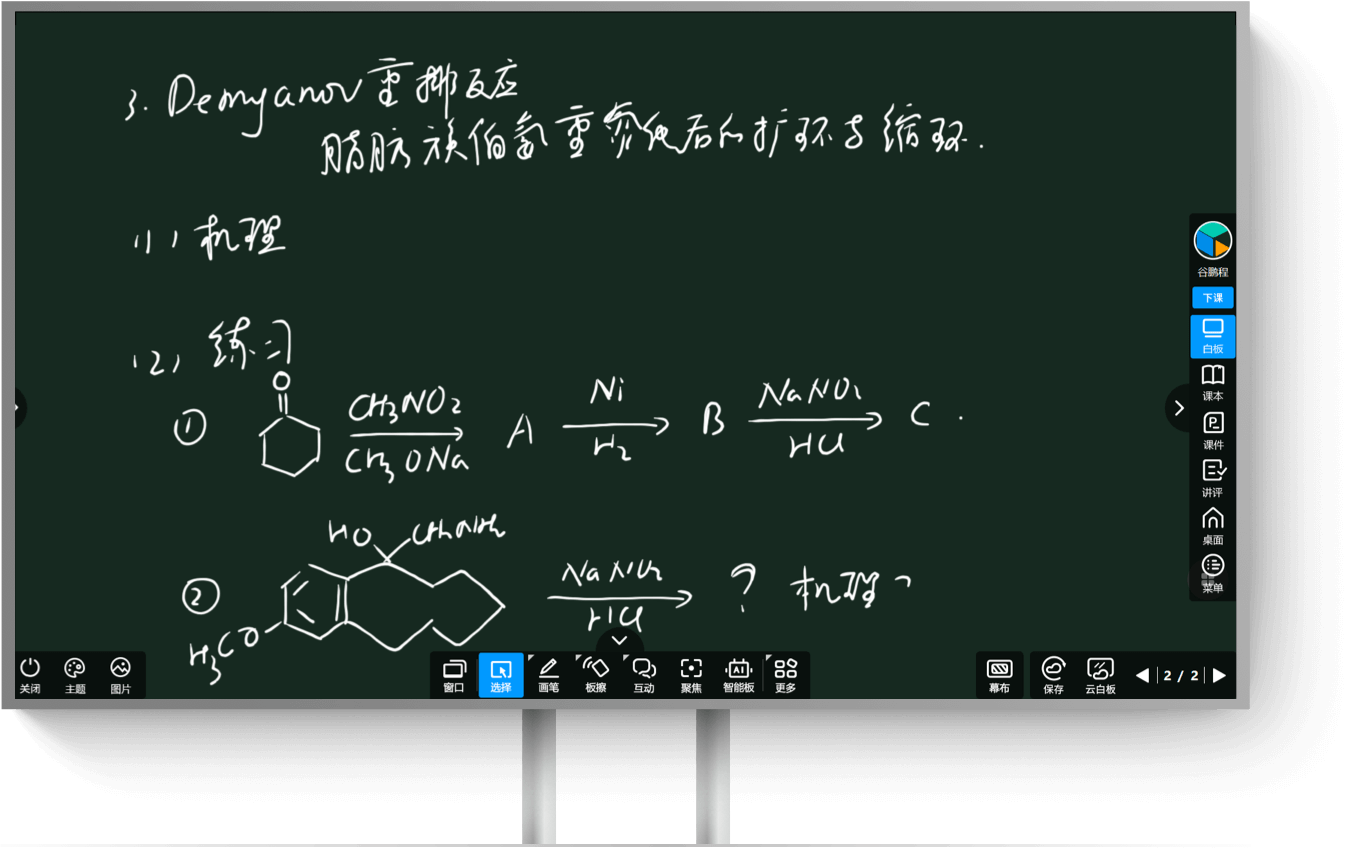 3. Demyanov重排反应
脂肪族伯氨重氮化后的扩环与缩环.
(1) 机理
(2) 练习
① O CH3NO2 CH3ONa A Ni H2 B NaNO2 HCl C .
② HO CH2NH2 H3CO NaNO2 HCl ? 机理?
谷鹏程
下课
白板
课本
课件
讲评
桌面
菜单
关闭 主题 图片 窗口 选择 画笔 板擦 互动 聚焦 智能板 更多 幕布 保存 云白板 2 / 2